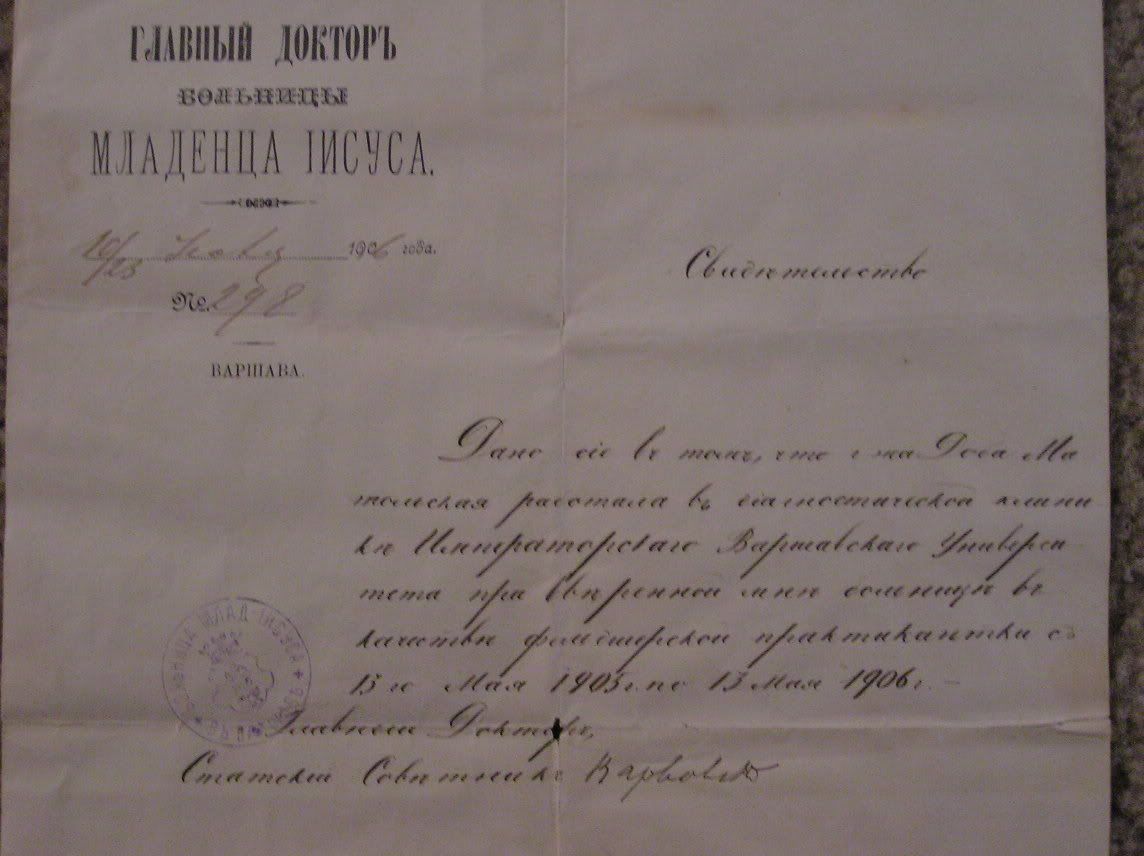 ГЛАВНЫЙ ДОКТОРЪ
БОЛЬНИЦЫ
МЛАДЕНЦА ІИСУСА.
10/23 1906 года.
№ 298
ВАРШАВА.
Свидѣтельство
Дано сіе въ томъ, что г-жа Роса Ма
тольская работала въ діагностической клини
кѣ Императорскаго Варшавскаго Универси-
тета при ввѣренной мнѣ больницѣ въ
качествѣ фельдшерской практикантки съ
15 го Мая 1905 г. по 15 Мая 1906 г. –
Главный Докторъ,
Статскій Совѣтникъ
МЛАД·ІИСУСА